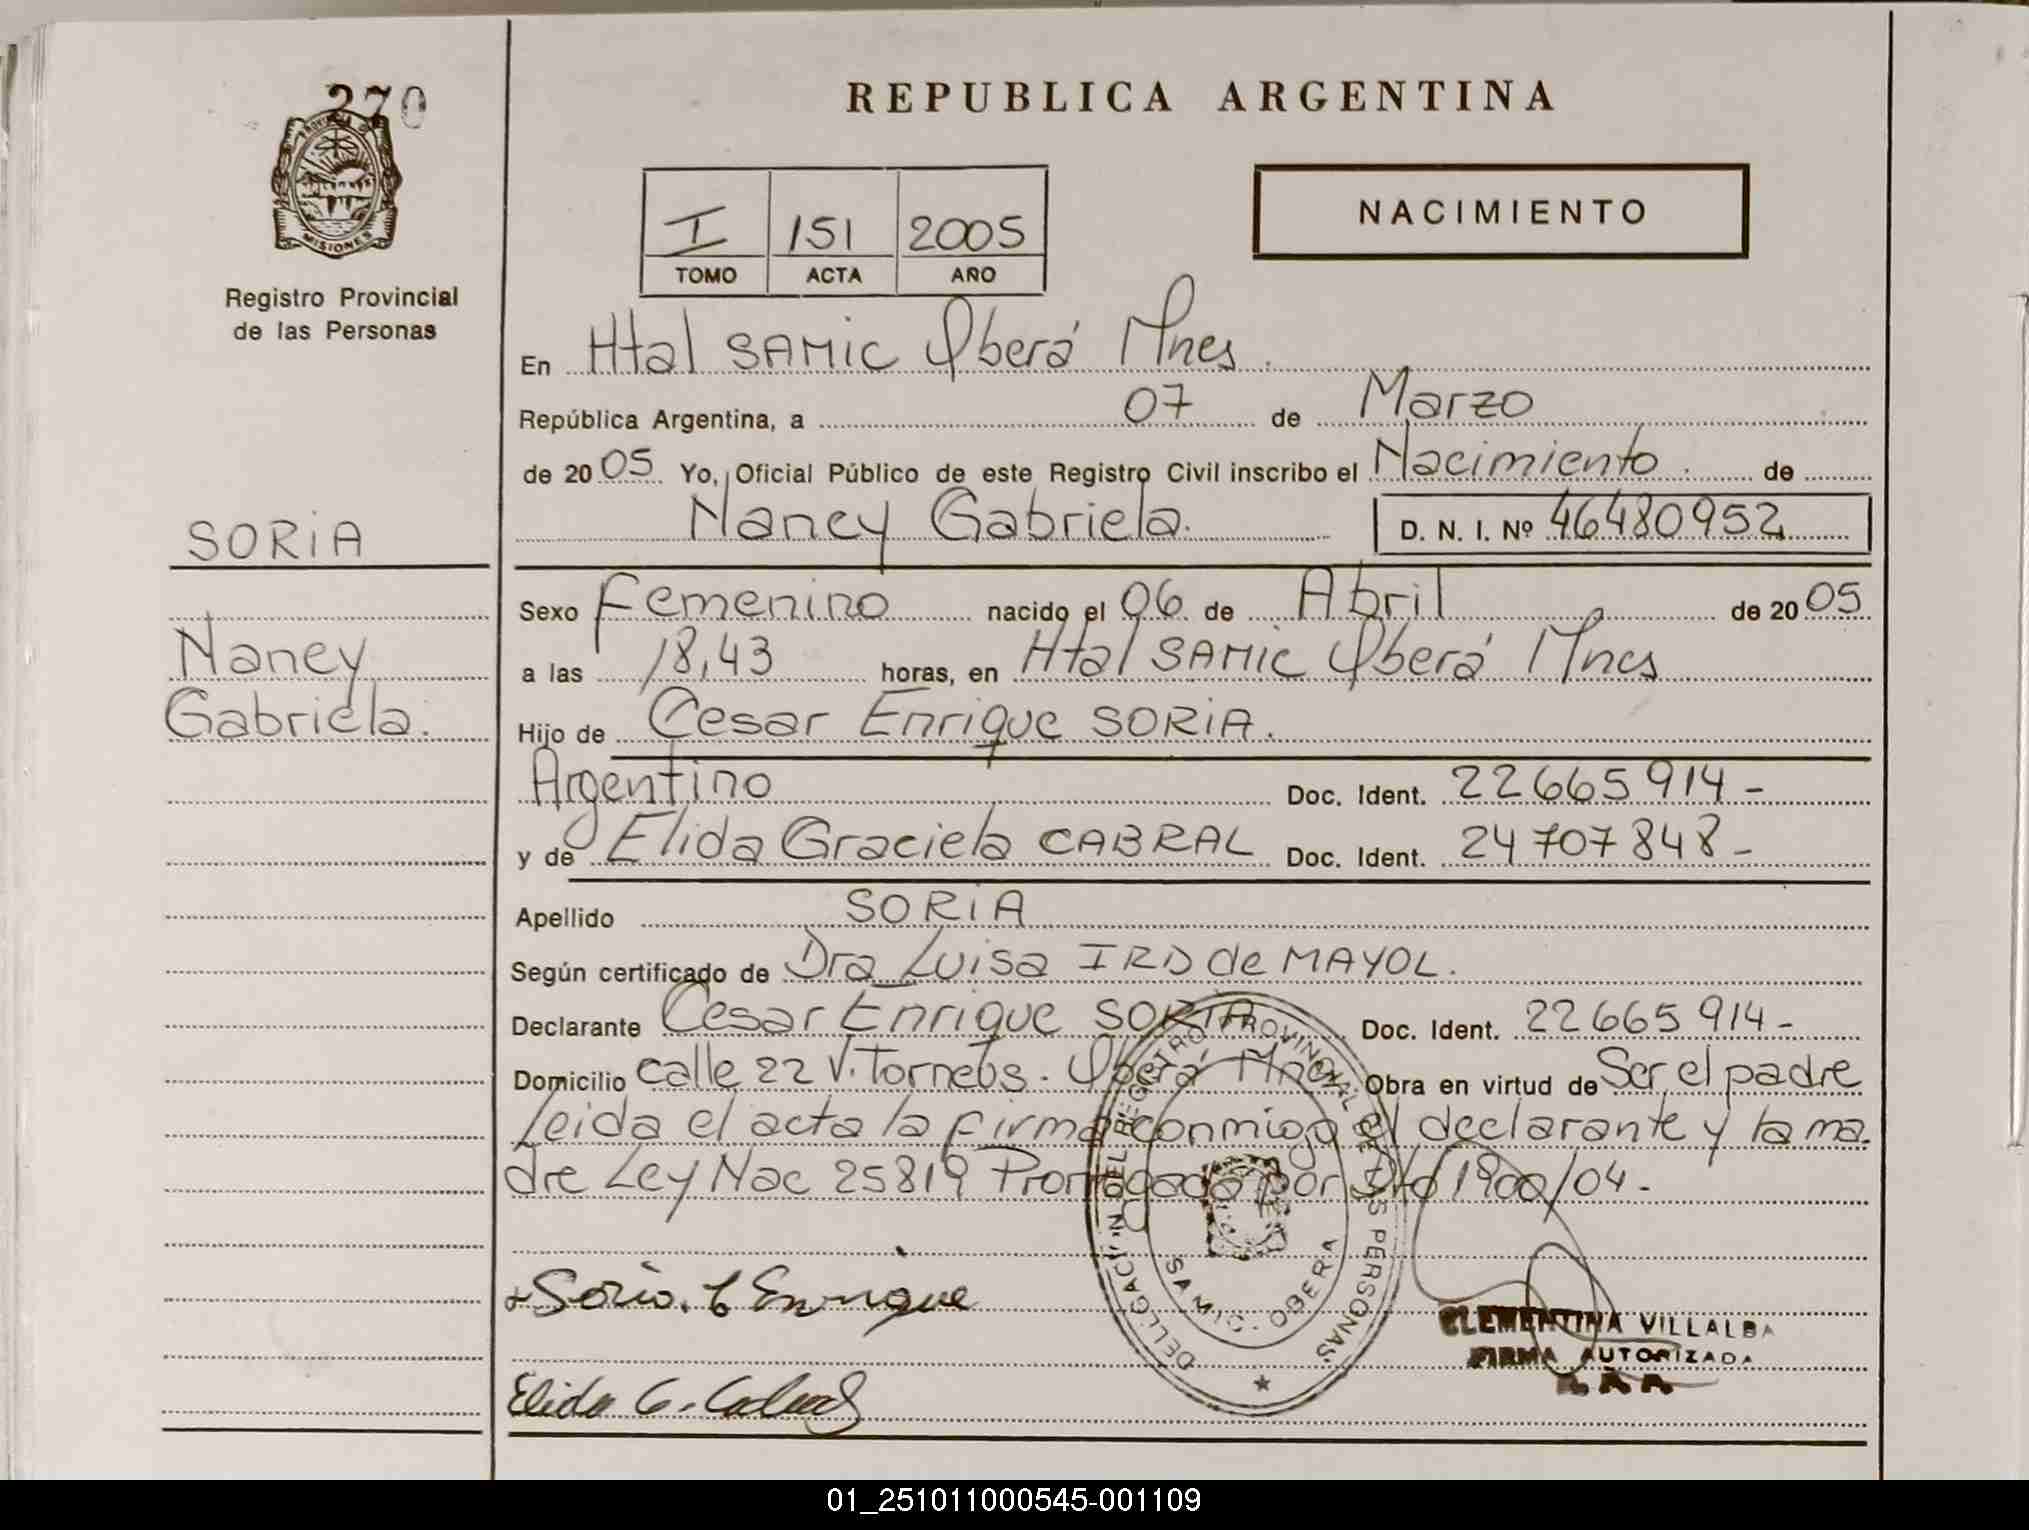 270
PROVINCIA DE
MISIONES
Registro Provincial
de las Personas
SORiA
Nancy
Gabriela.
REPUBLICA ARGENTINA
I 151 2005
TOMO ACTA AÑO
NACIMIENTO
En Htal SAMic Oberá Mnes.
República Argentina, a 07 de Marzo
de 2005 Yo, Oficial Público de este Registro Civil inscribo el Nacimiento. de
Nancy Gabriela. D. N. I. Nº 46480952
Sexo Femenino nacido el 06 de Abril de 2005
a las 18,43 horas, en Htal SAMic Oberá Mnes
Hijo de Cesar Enrique SORiA.
Argentino Doc. Ident. 22665914-
y de Elida Graciela CABRAL Doc. Ident. 24707848-
Apellido SORiA
Según certificado de Dra Luisa de MAYOL.
Declarante Cesar Enrique SORiA Doc. Ident. 22665914-
Domicilio calle 22 V. Oberá Mnes Obra en virtud de Ser el padre
Leida el acta la firma conmigo el declarante y la ma.
dre Ley Nac 25819 Prorrogada por Dto 1900/04.
Soria. C Enrique
Elida G. Cabral
REGISTRO PROVINCIAL DE LAS PERSONAS
OBERA
CLEMENTINA VILLALBA
FIRMA AUTORIZADA
01_251011000545-001109